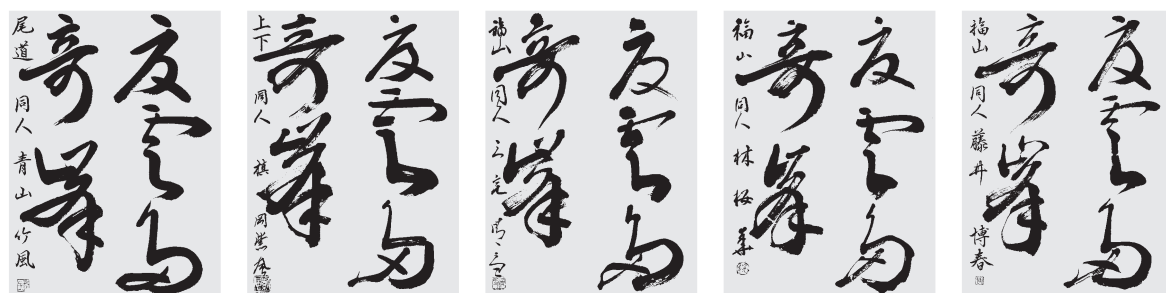 夏雲多
奇峯
尾道 同人 青山竹風
夏雲多
奇峯
上下 同人
夏雲多
奇峯
福山同人 三宅
夏雲多
奇峯
福山 同人 林
夏雲多
奇峯
福山同人 藤井 博春